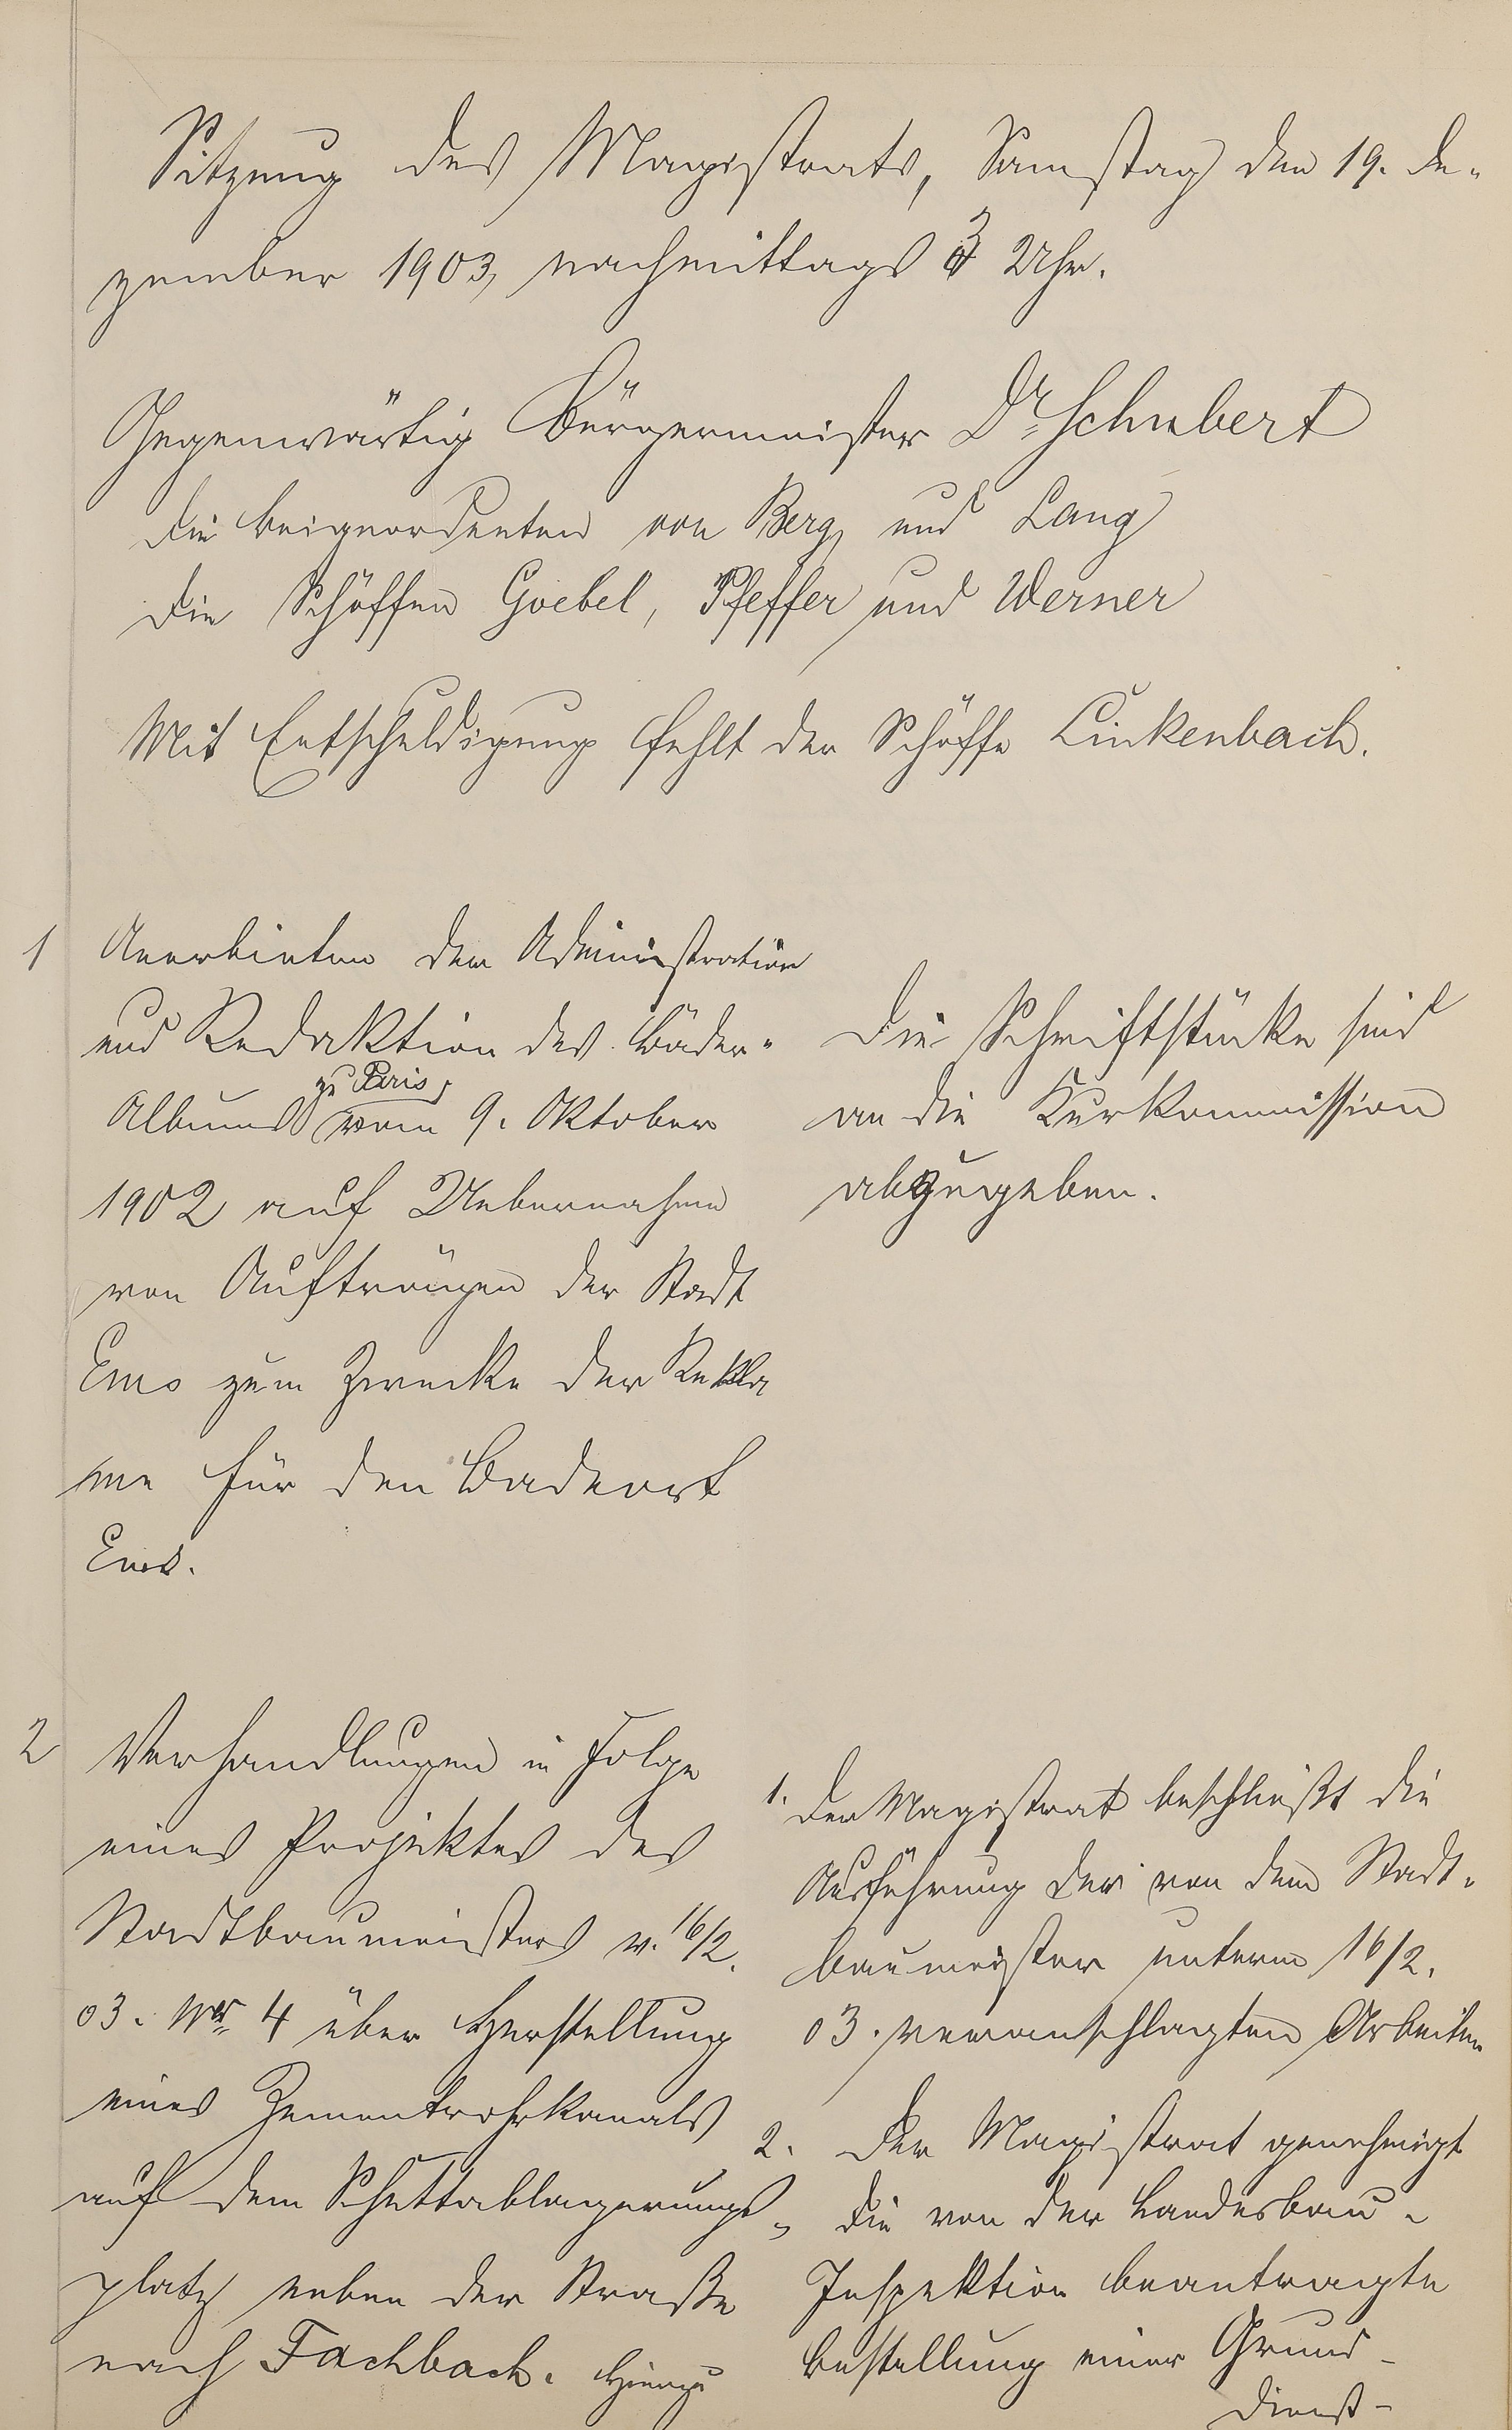 Sitzung des Magistrats, Samstag den 19. De-
zember 1903, nachmittags 3 Uhr.
Gegenwärtig Bürgermeister Dr. Schubert
die Beigeordneten von Berg und Lang
die Schöffen Goebel, Pfeffer und Werner
Mit Entschuldigung fehlt der Schöffe Linkenbach.
1 Anerbieten der Administration
und Redaktion des Bäder-
Albums zu Paris vom 9. Oktober
1902 auf Uebernahme
von Aufträgen der Stadt
Ems zum Zwecke der Rekla
me für den Badeort
Ems.
Die Schriftstücke sind
an die Kurkommission
abzugeben.
2 Verhandlungen in Folge
eines Projektes des
Stadtbaumeisters v. 16/2.
03. Nr. 4 über Herstellung
eines Zementrohrkanals
auf dem Schuttablagerungs-
platz neben der Straße
nach Fachbach. Hierzu
1. Der Magistrat beschließt die
Ausführung der von dem Stadt-
baumeister unterm 16/2.
03. veranschlagten Arbeiten
2. Der Magistrat genehmigt
die von der Landesbau-
Inspektion beantragte
Bestellung einer Grund-
dienst-